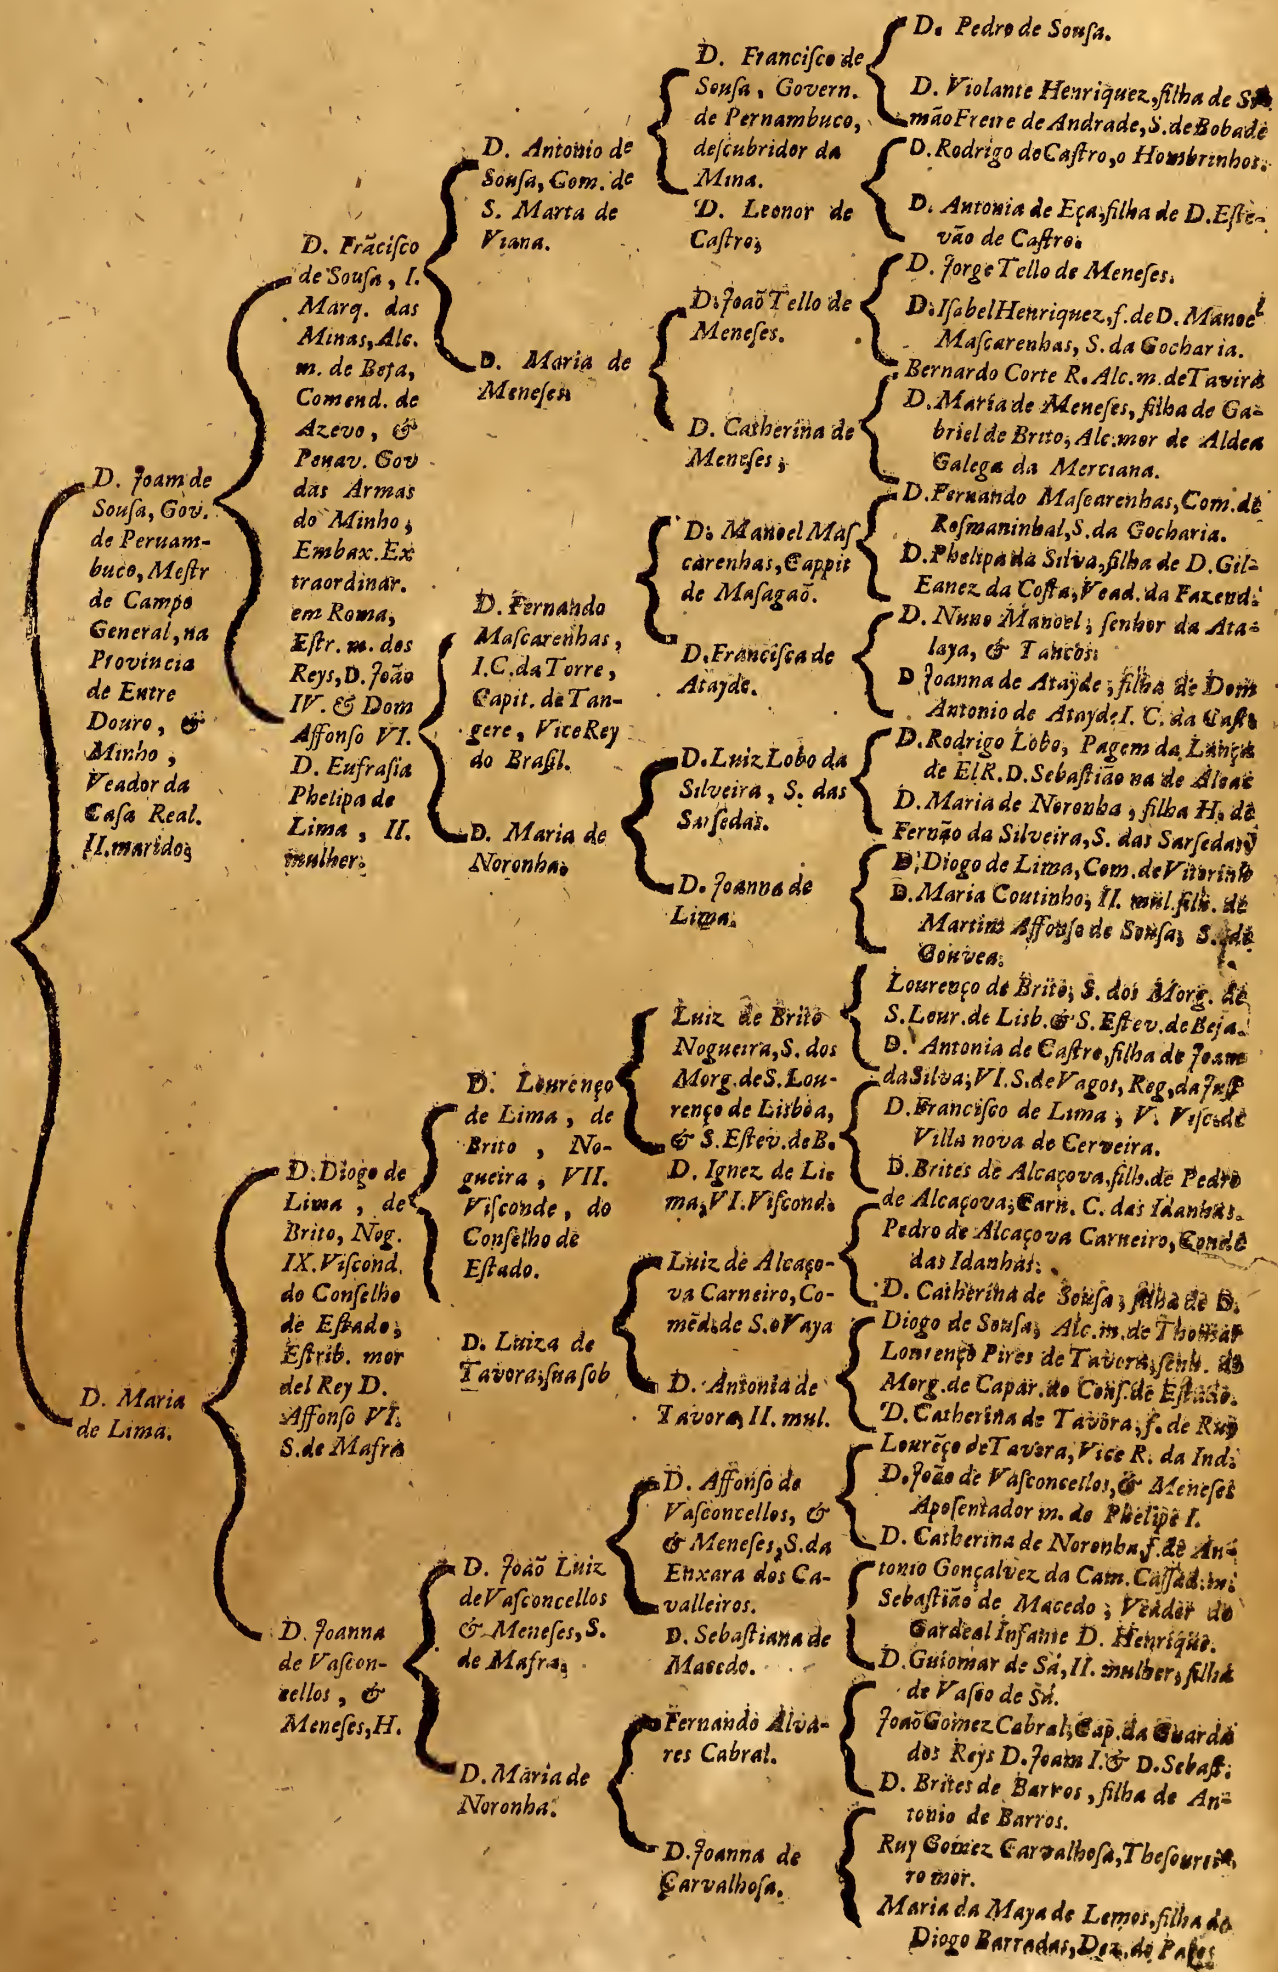 D. Joam de
Sousa, Gov.
de Pernam-
buco, Mestr
de Campo
General, na
Provincia
de Entre
Douro, &
Minho,
Veador da
Casa Real.
II. marido;
D. Maria
de Lima.
D. Frãcisco
de Sousa, I.
Marq. das
Minas, Alc.
m. de Beja,
Comend. de
Azevo, &
Penav. Gov
das Armas
do Minho,
Embax. Ex
traordinar.
em Roma,
Estr. m. dos
Reys, D. João
IV. & Dom
Affonso VI.
D. Eufrasia
Phelipa de
Lima, II.
mulher.
D. Diogo de
Lima, de
Brito, Nog.
IX. Viscond.
do Conselho
de Estado,
Estrib. mor
del Rey D.
Affonso VI.
S. de Mafra
D. Joanna
de Vascon-
cellos, &
Meneses, H.
D. Antonio de
Sousa, Com. de
S. Marta de
Viana.
D. Maria de
Meneses.
D. Fernando
Mascarenhas,
I. C. da Torre,
Capit. de Tan-
gere, Vice Rey
do Brasil.
D. Maria de
Noronha.
D. Lourenço
de Lima, de
Brito, No-
gueira, VII.
Visconde, do
Conselho de
Estado.
D. Luiza de
Tavora, sua sob
D. Joaõ Luiz
de Vasconcellos
& Meneses, S.
de Mafra,
D. Maria de
Noronha.
D. Francisco de
Sousa, Govern.
de Pernambuco,
descubridor da
Mina.
D. Leonor de
Castro,
D. Joaõ Tello de
Meneses.
D. Catherina de
Meneses,
D. Manoel Mas
carenhas, Cappit
de Masagaõ.
D. Francisca de
Atayde.
D. Luiz Lobo da
Silveira, S. das
Sarsedas.
D. Joanna de
Lima.
Luiz de Brito
Nogueira, S. dos
Morg. de S. Lou-
renço de Lisboa,
& S. Estev. de B.
D. Ignez de Li-
ma, VI. Viscond.
Luiz de Alcaço-
va Carneiro, Co-
mẽd. de S.
D. Antonia de
Tavora, II. mul.
D. Affonso de
Vasconcellos, &
& Meneses, S. da
Enxara dos Ca-
valleiros.
D. Sebastiana de
Macedo.
Fernando Alva-
res Cabral.
D. Joanna de
Carvalhosa.
D. Pedro de Sousa.
D. Violante Henriquez, filha de Si-
mão Freire de Andrade, S. de Bobade
D. Rodrigo de Castro, o Hombrinhos.
D. Antonia de Eça, filha de D. Este-
vão de Castro.
D. Jorge Tello de Meneses.
D. Isabel Henriquez, f. de D. Manoel
Mascarenhas, S. da Gocharia.
Bernardo Corte R. Alc. m. de Tavira
D. Maria de Meneses, filha de Ga-
briel de Brito, Alc. mor de Aldea
Galega da Merciana.
D. Fernando Mascarenhas, Com. de
Rosmaninhal, S. da Gocharia.
D. Phelipa da Silva, filha de D. Gil-
Eanez da Costa, Vead. da Fazend.
D. Nuno Manoel, senhor da Ata-
laya, & Tancos.
D Joanna de Atayde, filha de Dom
Antonio de Atayde I. C. da Cast
D. Rodrigo Lobo, Pagem da Lança
de El R. D. Sebastião na de Alcac
D. Maria de Noronha, filha H. de
Fernão da Silveira, S. das Sarsedas
D. Diogo de Lima, Com. de Vitorinho
D. Maria Coutinho, II. mul. filh. de
Martim Affonso de Sousa, S. de
Gouvea.
Lourenço de Brito, S. dos Morg. de
S. Lour. de Lisb. & S. Estev. de Beja.
D. Antonia de Castro, filha de Joam
da Silva, VI. S. de Vagos, Reg. da Just
D. Francisco de Lima, V. Visc. de
Villa nova de Cerveira.
D. Brites de Alcaçova, filh. de Pedro
de Alcaçova, Carn. C. das Idanhas.
Pedro de Alcaçova Carneiro, Conde
das Idanhas.
D. Catherina de Sousa, filha de D.
Diogo de Sousa, Alc. m. de Thomar
Lourenço Pires de Tavora, senh. do
Morg. de Capar. do Cons. de Estado.
D. Catherina de Tavora, f. de Ruy
Lourẽço de Tavora, Vice R. da Ind.
D. João de Vasconcellos, & Meneses
Aposentador m. do Phelipe I.
D. Catherina de Noronha, f. de An-
tonio Gonçalvez da Cam. Cassad. m.
Sebastião de Macedo, Veador do
Cardeal Infante D. Henrique.
D. Guiomar de Sá, II. mulher, filha
de Vasco de Sá.
Joaõ Gomez Cabral, Cap. da Guarda
dos Reys D. Joam I. & D. Sebast.
D. Brites de Barros, filha de An-
tonio de Barros.
Ruy Gomez Carvalhosa, Thesourei-
ro mor.
Maria da Maya de Lemos, filha de
Diogo Barradas, Dez. do Paço